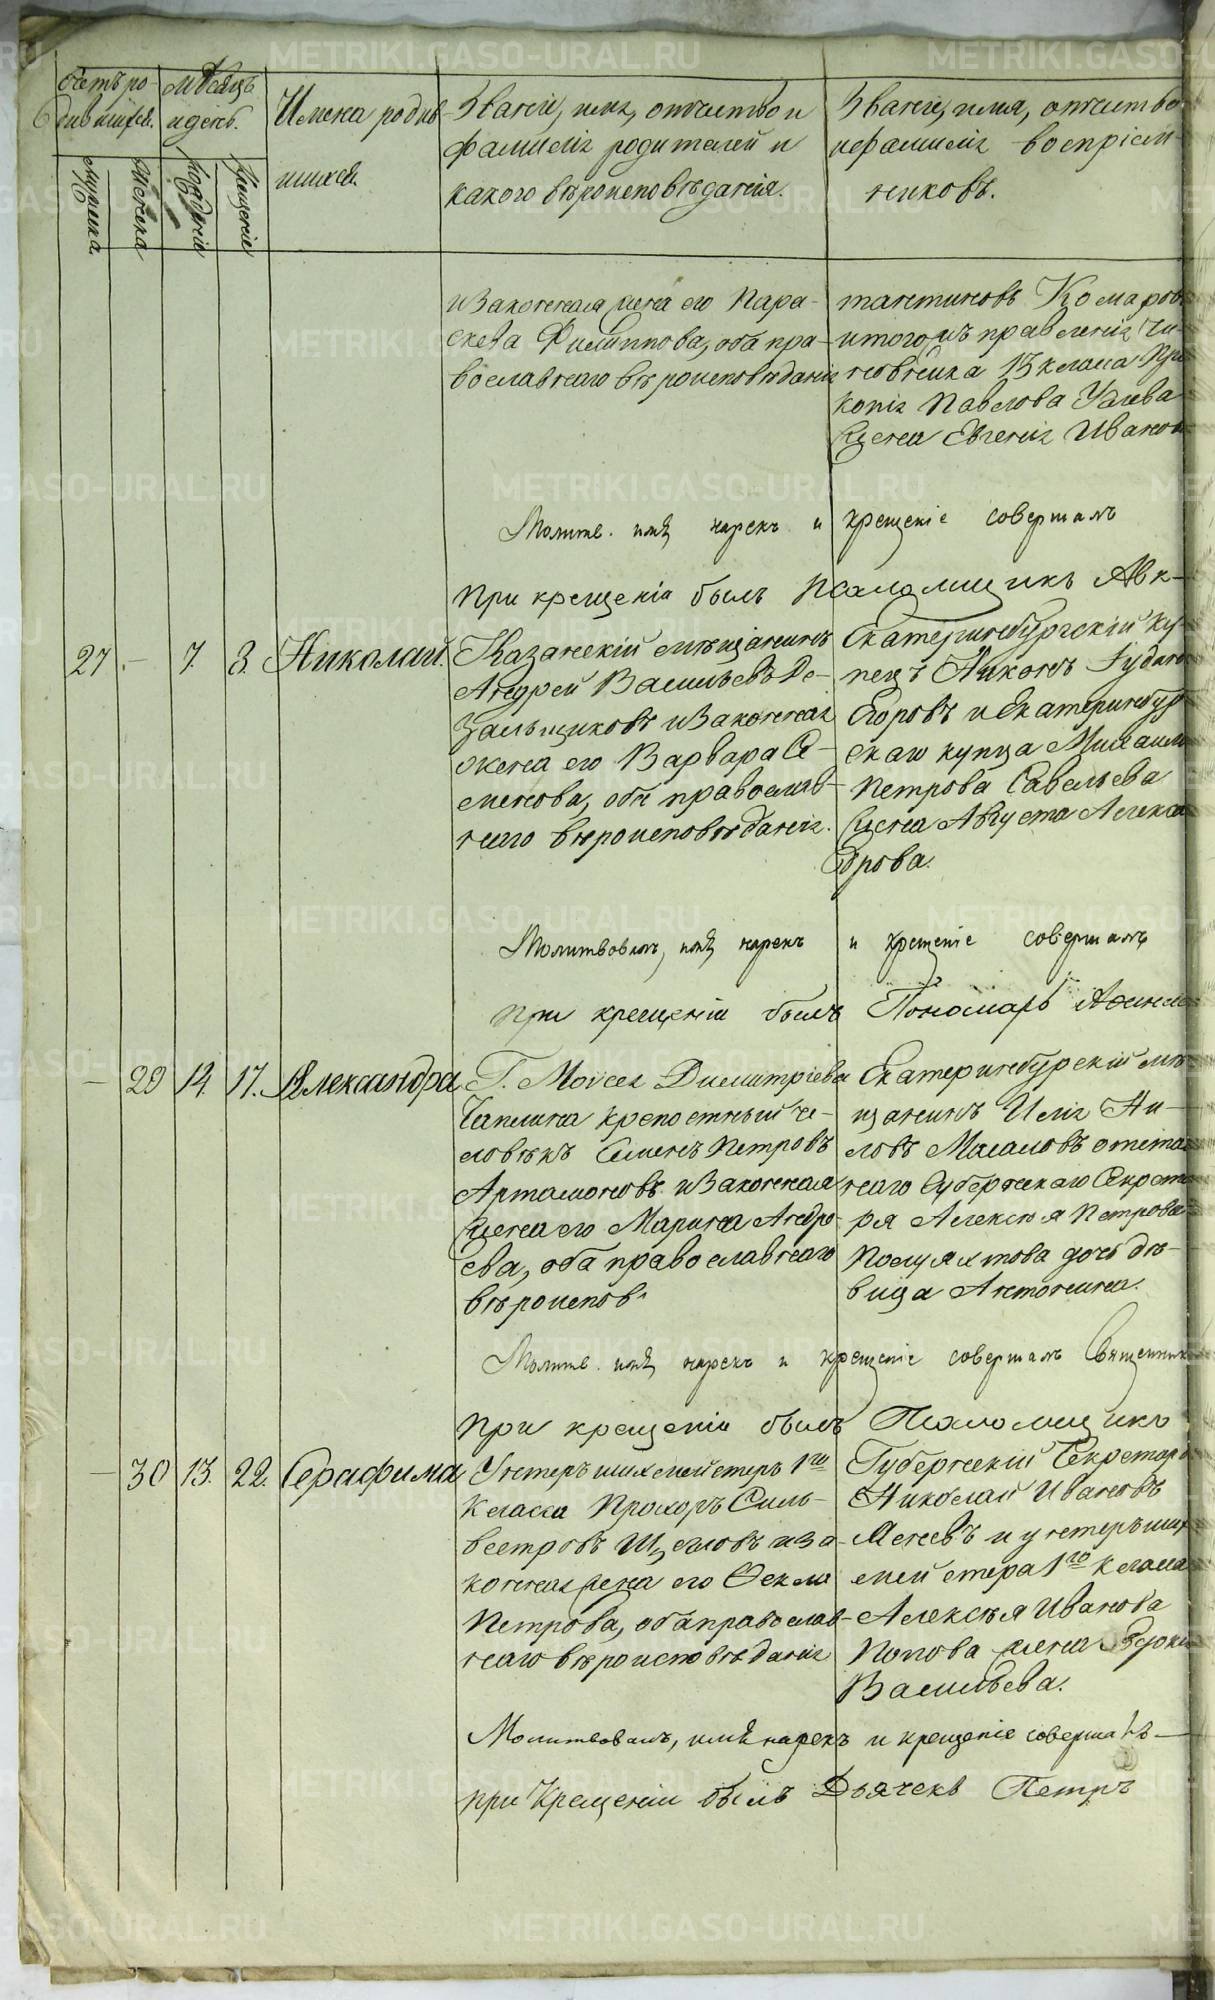 Счетъ ро-
дившихся.
Мѣсяцъ
и день.
Имена родив-
шихся.
Званіе, имя, отчество и
фамилія родителей и
какого вѣроисповѣданія.
Званіе, имя, отчество
и фамилія воспріем-
никовъ.
мужеска
женска
рожденія
крещенія
и законная жена его Пара-
скева Филиппова, оба пра-
вославнаго вѣроисповѣданія
тантиновъ Комаровъ
и того жъ правленія Чи-
новника 13 класса Про
копія Павлова
жена Евгенія Иванов
Молитв. имя нарекъ и крещеніе совершалъ
При крещеніи былъ Псаломщикъ Авк-
27 — 7. 8. Николай.
Казанскій мѣщанинъ
Андрей Васильевъ Де-
зальщиковъ и законная
жена его Варвара Се-
менова, оба православ-
наго вѣроисповѣданія.
Екатеринбургскій ку
пецъ Никонъ
Егоровъ и Екатеринбур
скаго купца Михаила
Петрова Савельева
жена Августа Алекса
дрова.
Молитвовалъ, имя нарекъ и крещеніе совершалъ
При крещеніи былъ Пономарь
— 29 14. 17. Александра
Г. Моисея Димитріева
Чаплина крепостный че-
ловѣкъ Семенъ Петровъ
Артамоновъ и законная
жена его Марина Андре-
ева, оба православнаго
вѣроиспов.
Екатеринбурскій мѣ
щанинъ Илія Ни-
ловъ Масаловъ отста
наго Губернскаго Секрета
ря Алексѣя Петрова
дочь дѣ-
вица Антонина.
Молитв. имя нарекъ и крещеніе совершалъ Священник
При крещеніи былъ Псаломщикъ
— 30 13. 22. Серафима
Унтеръ шихмейстеръ 1го
класса Прохоръ Силь-
вестровъ Щегловъ и за-
конная жена его Фекла
Петрова, оба православ-
наго вѣроисповѣданія
Губернскій Секретарь
Николай Ивановъ
и унтеръ ших
мейстера 1го класса
Алексѣя Иванова
Попова жена Евдокі
Васильева.
Молитвовалъ, имя нарекъ и крещеніе совершалъ —
при Крещеніи былъ Дьячекъ Петръ
METRIKI.GASO-URAL.RU